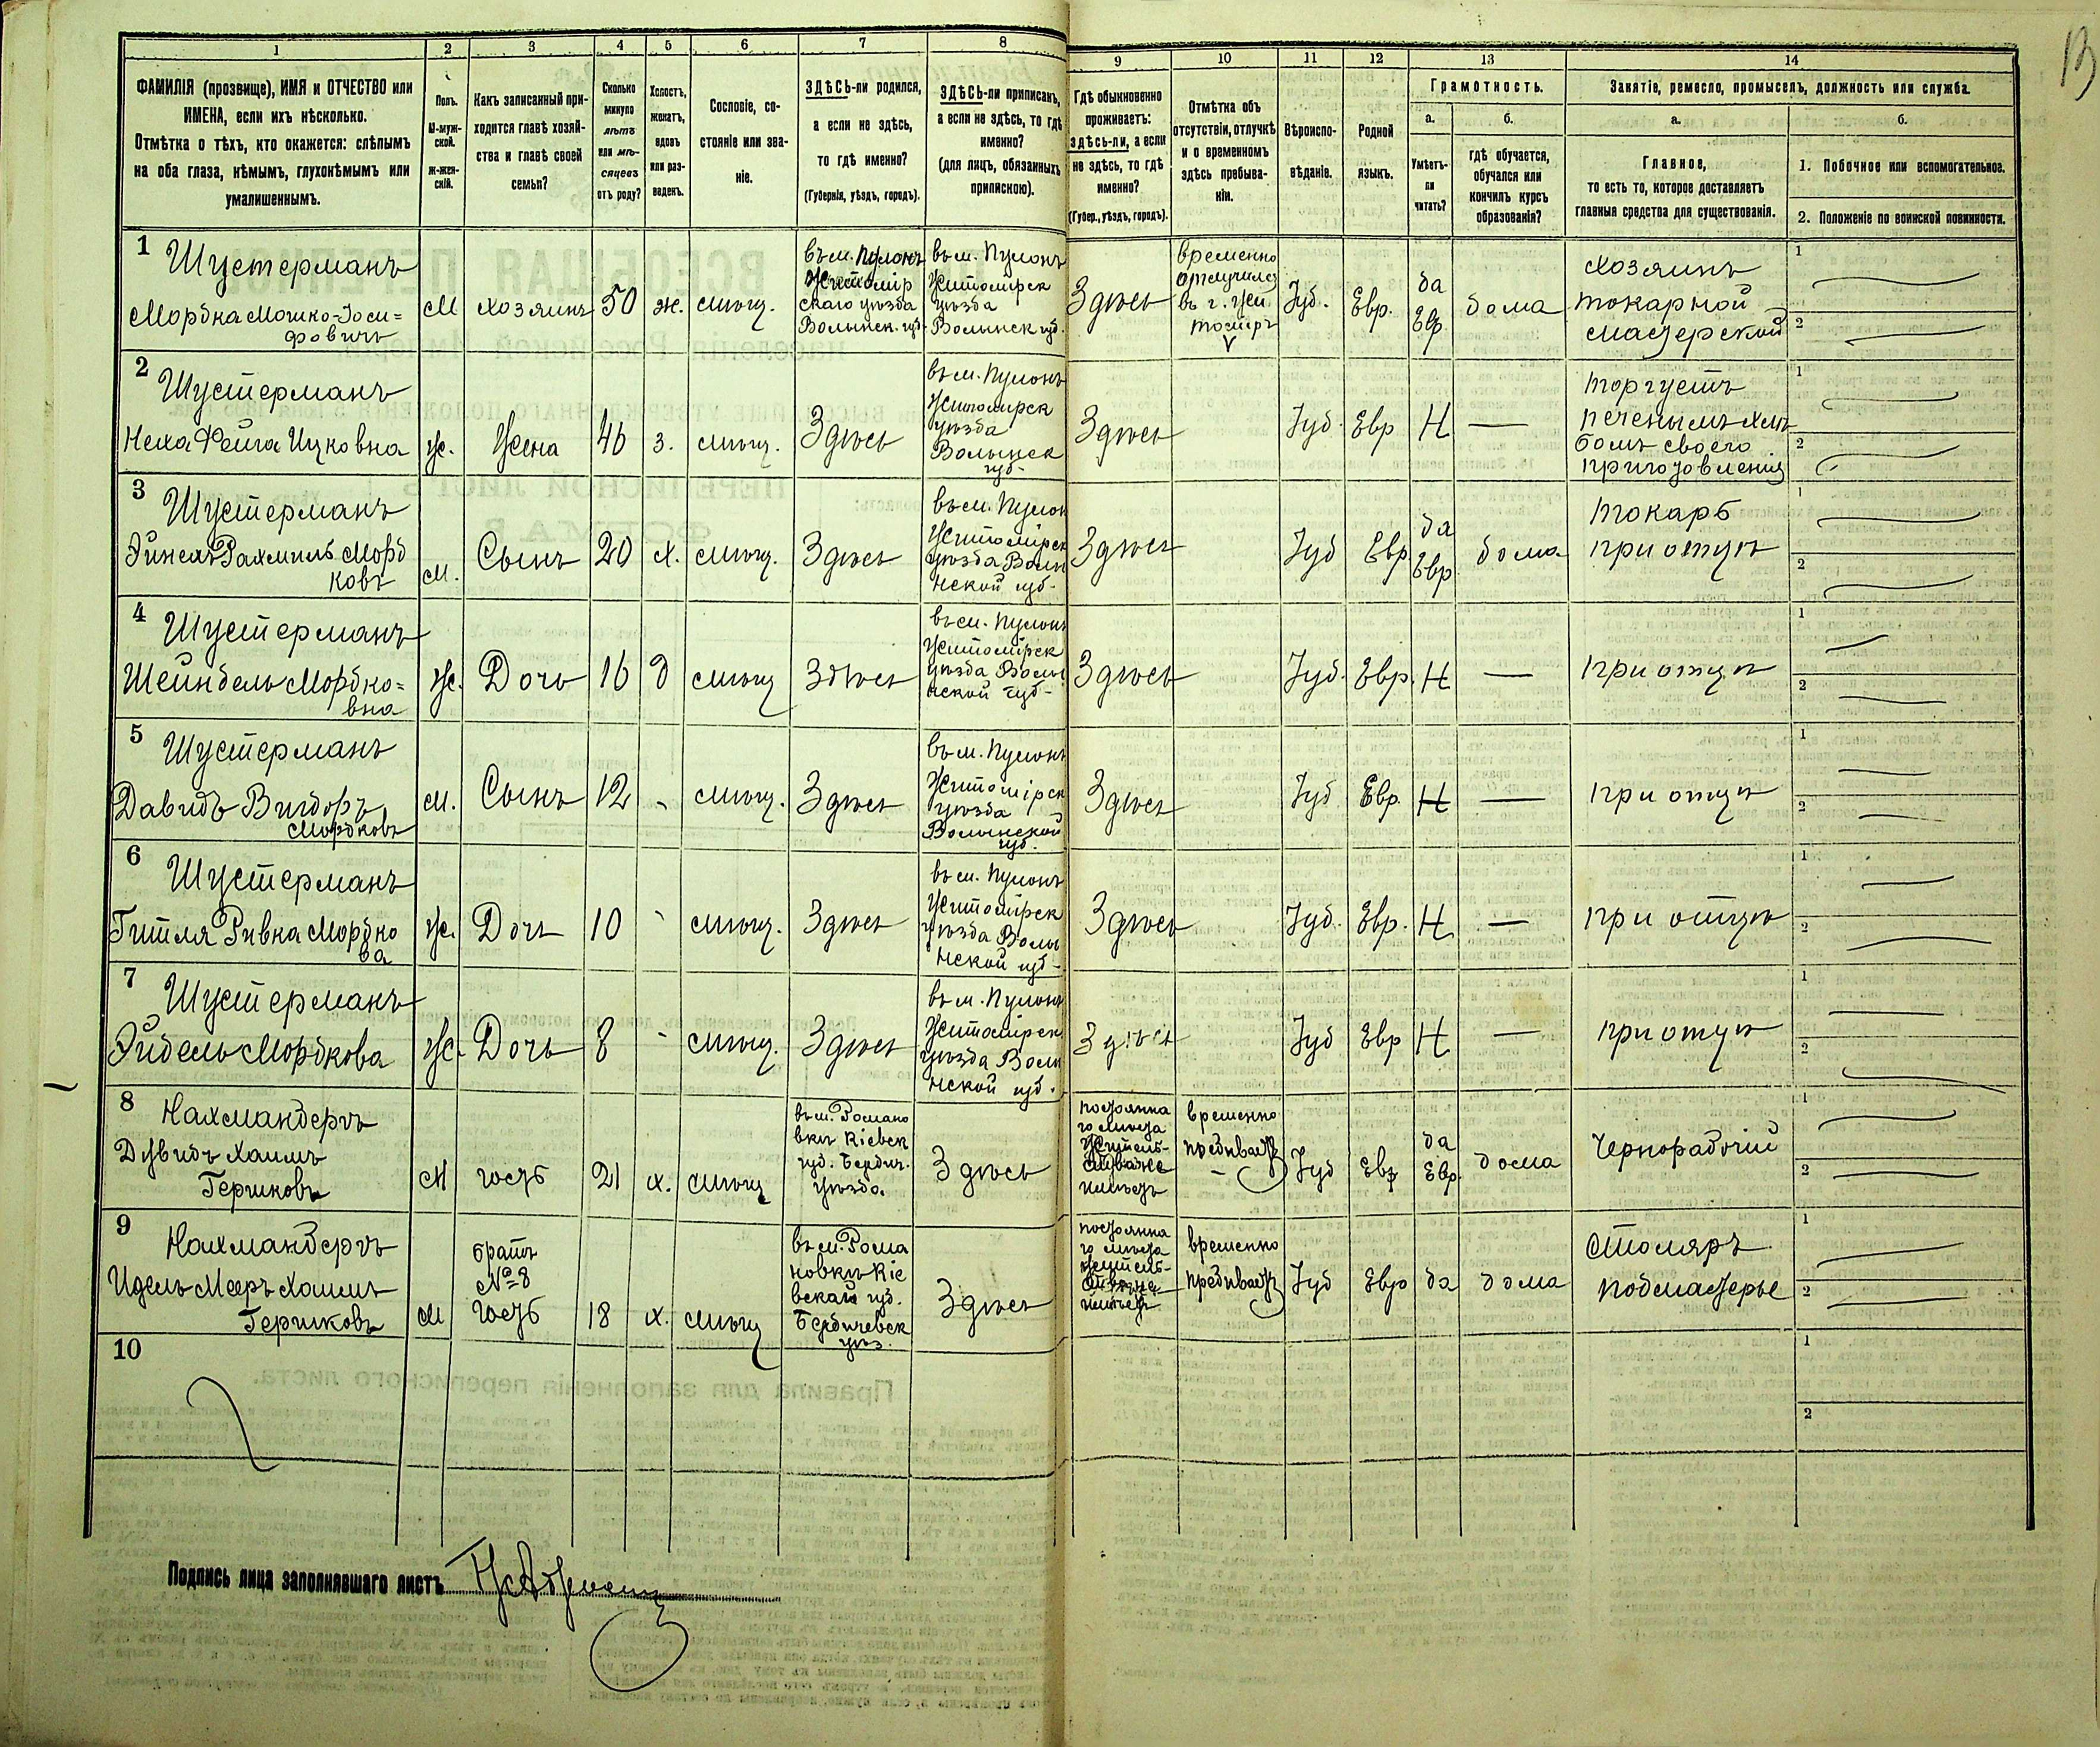 13
1 2 3 4 5 6 7 8 9 10 11 12 13 14
ФАМИЛІЯ (прозвище), ИМЯ и ОТЧЕСТВО или
ИМЕНА, если ихъ нѣсколько.
Отмѣтка о тѣхъ, кто окажется: слѣпымъ
на оба глаза, нѣмымъ, глухонѣмымъ или
умалишеннымъ.
Полъ.
М-муж-
ской.
Ж-жен-
скій.
Какъ записанный при-
ходится главѣ хозяй-
ства и главѣ своей
семьи?
Сколько
минуло
лѣтъ
или мѣ-
сяцевъ
отъ роду?
Холостъ,
женатъ,
вдовъ
или раз-
веденъ.
Сословіе, со-
стояніе или зва-
ніе.
ЗДѢСЬ-ли родился,
а если не здѣсь,
то гдѣ именно?
(Губернія, уѣздъ, городъ).
ЗДѢСЬ-ли приписанъ,
а если не здѣсь, то гдѣ
именно?
(для лицъ, обязанныхъ
припискою).
Гдѣ обыкновенно
проживаетъ:
здѣсь-ли, а если
не здѣсь, то гдѣ
именно?
(Губер., уѣздъ, городъ).
Отмѣтка объ
отсутствіи, отлучкѣ
и о временномъ
здѣсь пребыва-
ніи.
Вѣроиспо-
вѣданіе.
Родной
языкъ.
Грамотность.
а.
Умѣетъ-
ли
читать?
б.
гдѣ обучается,
обучался или
кончилъ курсъ
образованія?
Занятіе, ремесло, промыселъ, должность или служба.
а.
Главное,
то есть то, которое доставляетъ
главныя средства для существованія.
б.
1. Побочное или вспомогательное.
2. Положеніе по воинской повинности.
1
Шустерманъ
Мордка Мошко-Іоси=
фовичъ
М
хозяинъ
50
ж.
мѣщ.
въ м. Пулинъ
Житомір
скаго уѣзда
Волынск. губ.
въ м. Пулинъ
Житомірск
уѣзда
Волынск губ.
Здѣсь
временно
отлучился
въ г. Жи
томіръ
Іуд.
Евр.
да
Евр
дома
хозяинъ
токарной
мастерской
1
2
2
Шустерманъ
Неха Фейга Ицковна
ж.
Жена
46
з.
мѣщ.
Здѣсь
въ м. Пулинъ
Житомірск
уѣзда
Волынск
губ-
Здѣсь
Іуд.
Евр
Н
—
торгуетъ
печенымъ хлѣ
бомъ своего
приготовленія
1
2
3
Шустерманъ
Рахмиль Мордковъ
м.
Сынъ
20
х.
мѣщ.
Здѣсь
въ м. Пулин
Житомірск
уѣзда Волы
нской губ-
Здѣсь
Іуд
Евр
да
Евр
дома
токарь
при отцѣ
1
2
4
Шустерманъ
Шейндель Мордко=
вна
ж.
Дочь
16
д
мѣщ
Здѣсь
въ м. Пулинъ
Житомірск
уѣзда Волы
нской губ-
Здѣсь
Іуд.
Евр.
Н
—
при отцѣ
1
2
5
Шустерманъ
Давидъ Вигдоръ
Мордковъ
м.
Сынъ
12
-
мѣщ.
Здѣсь
въ м. Пулинъ
Житомірск
уѣзда
Волынской
губ.
Здѣсь
Іуд
Евр.
Н
—
при отцѣ
1
2
6
Шустерманъ
Гитля Ривка Мордко
ва
ж.
Дочь
10
-
мѣщ.
Здѣсь
въ м. Пулинъ
Житомірск
уѣзда Волы
нской губ-
Здѣсь
Іуд.
Евр.
Н
—
при отцѣ
1
2
7
Шустерманъ
Эйдель Мордкова
ж.
Дочь
8
-
мѣщ.
Здѣсь
въ м. Пулинъ
Житомірск
уѣзда Волы
нской губ.
Здѣсь
Іуд
Евр
Н
—
при отцѣ
1
2
8
Нахмандеръ
Давидъ Хаимъ
Гершковъ
М
гость
21
х.
мѣщ
въ м. Романо
вкѣ Кіевск
губ. Бердич.
уѣзда.
Здѣсь
постоянна
го мѣста
житель-
ства не
имѣетъ
временно
Іуд
Евр
да
Евр.
дома
Чернорабочій
1
2
9
Нахмандеръ
Идель Меер Хаимъ
Гершковъ
М
братъ
№ 8
гость
18
х.
мѣщ
въ м. Рома
новкѣ Кіе
вской губ.
Бердичевск
уѣз.
Здѣсь
постоянна
го мѣста
житель-
ства не
имѣетъ
временно
Іуд
Евр
да
дома
столяръ
подмастерье
1
2
10
1
2
Подпись лица заполнявшаго листъ